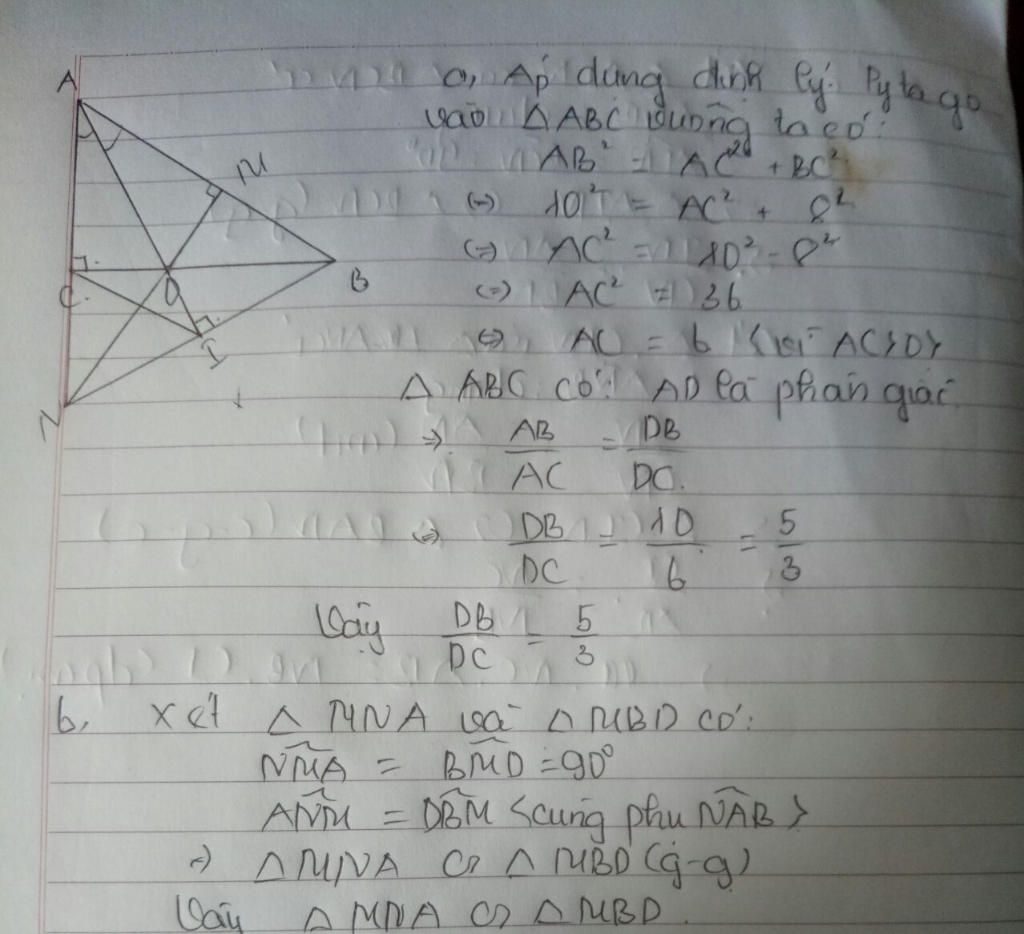 A
M
B
C
D
I
N
a, Áp dụng định lý Pytago
vào △ABC vuông ta có:
AB² = AC² + BC²
(=) 10² = AC² + 8²
(=) AC² = 10² - 8²
(=) AC² = 36
(=) AC = 6 <vì AC>0>
△ ABC có: AD là phân giác
=> AB/AC = DB/DC.
(=) DB/DC = 10/6 = 5/3
Vậy DB/DC = 5/3
b, Xét △ MNA và △ MBD có:
NMA = BMD = 90°
ANM = DBM <cùng phụ NAB>
=) △ MNA ∽ △ MBD (g-g)
Vậy △ MNA ∽ △ MBD.